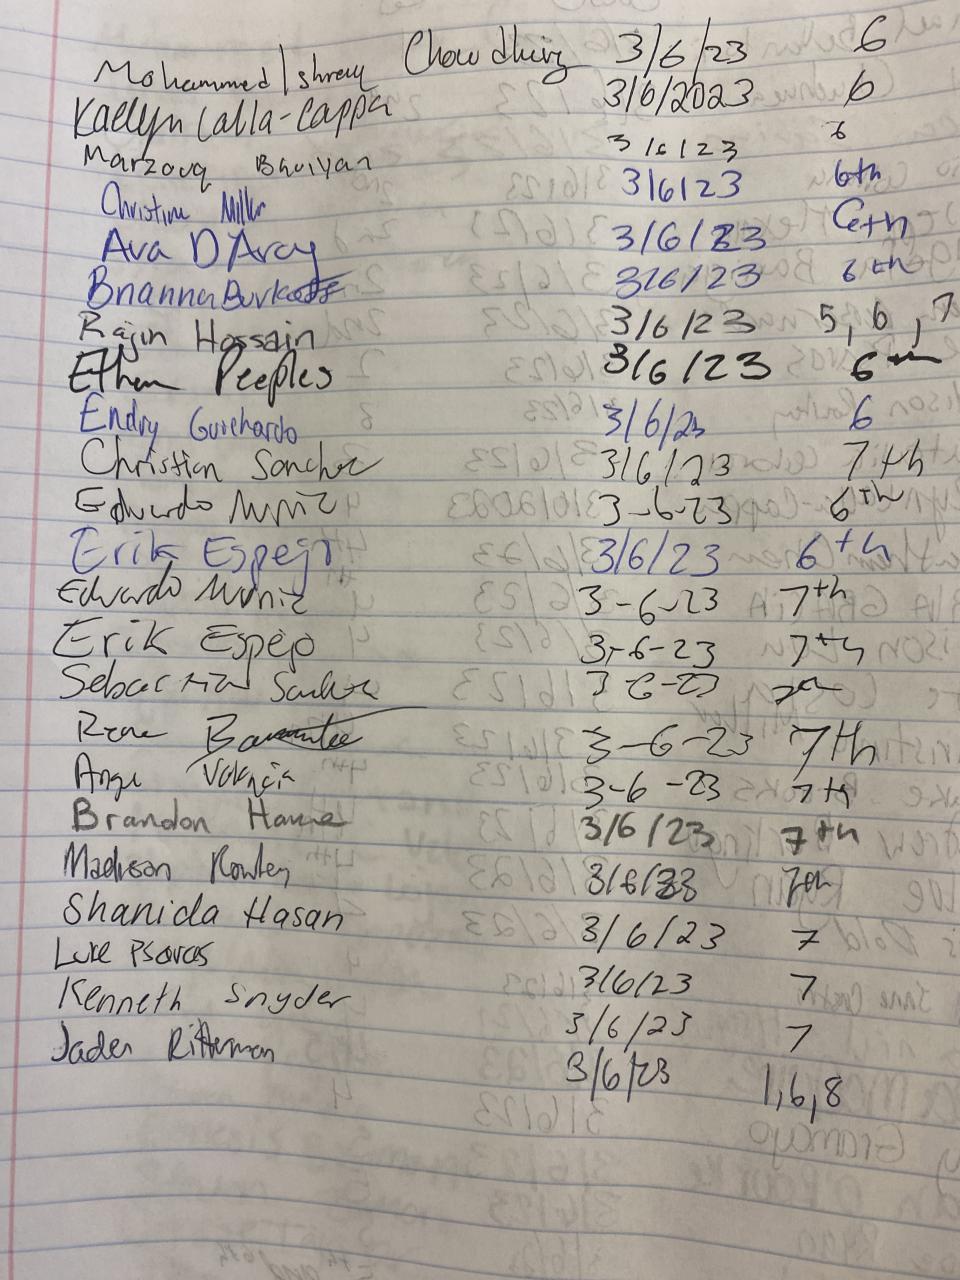 Mohammed Ishraq Chowdhury 3/6/23 6
Kaelyn Calla-Cappa 3/6/2023 6
Marzouq Bhuiyan 3/6/23 6
Christine Miller 3/6/23 6th
Ava D'Arcy 3/6/23 6th
Brianna Burkett 3/6/23 6th
Rajin Hossain 3/6/23 5, 6, 7
Ethan Peeples 3/6/23 6th
Endry Guichardo 3/6/23 6
Christian Sanchez 3/6/23 7th
Eduardo Muniz 3-6-23 6th
Erik Espejo 3/6/23 6th
Eduardo Muniz 3-6-23 7th
Erik Espejo 3-6-23 7th
Sebastian 3-6-23 7th
3-6-23 7th
Valencia 3-6-23 7th
Brandon 3/6/23 7th
Madison Rowley 3/6/23 7th
Shanida Hasan 3/6/23 7
Luke Psoras 3/6/23 7
Kenneth Snyder 3/6/23 7
Jaden Ritterman 3/6/23 1,6,8